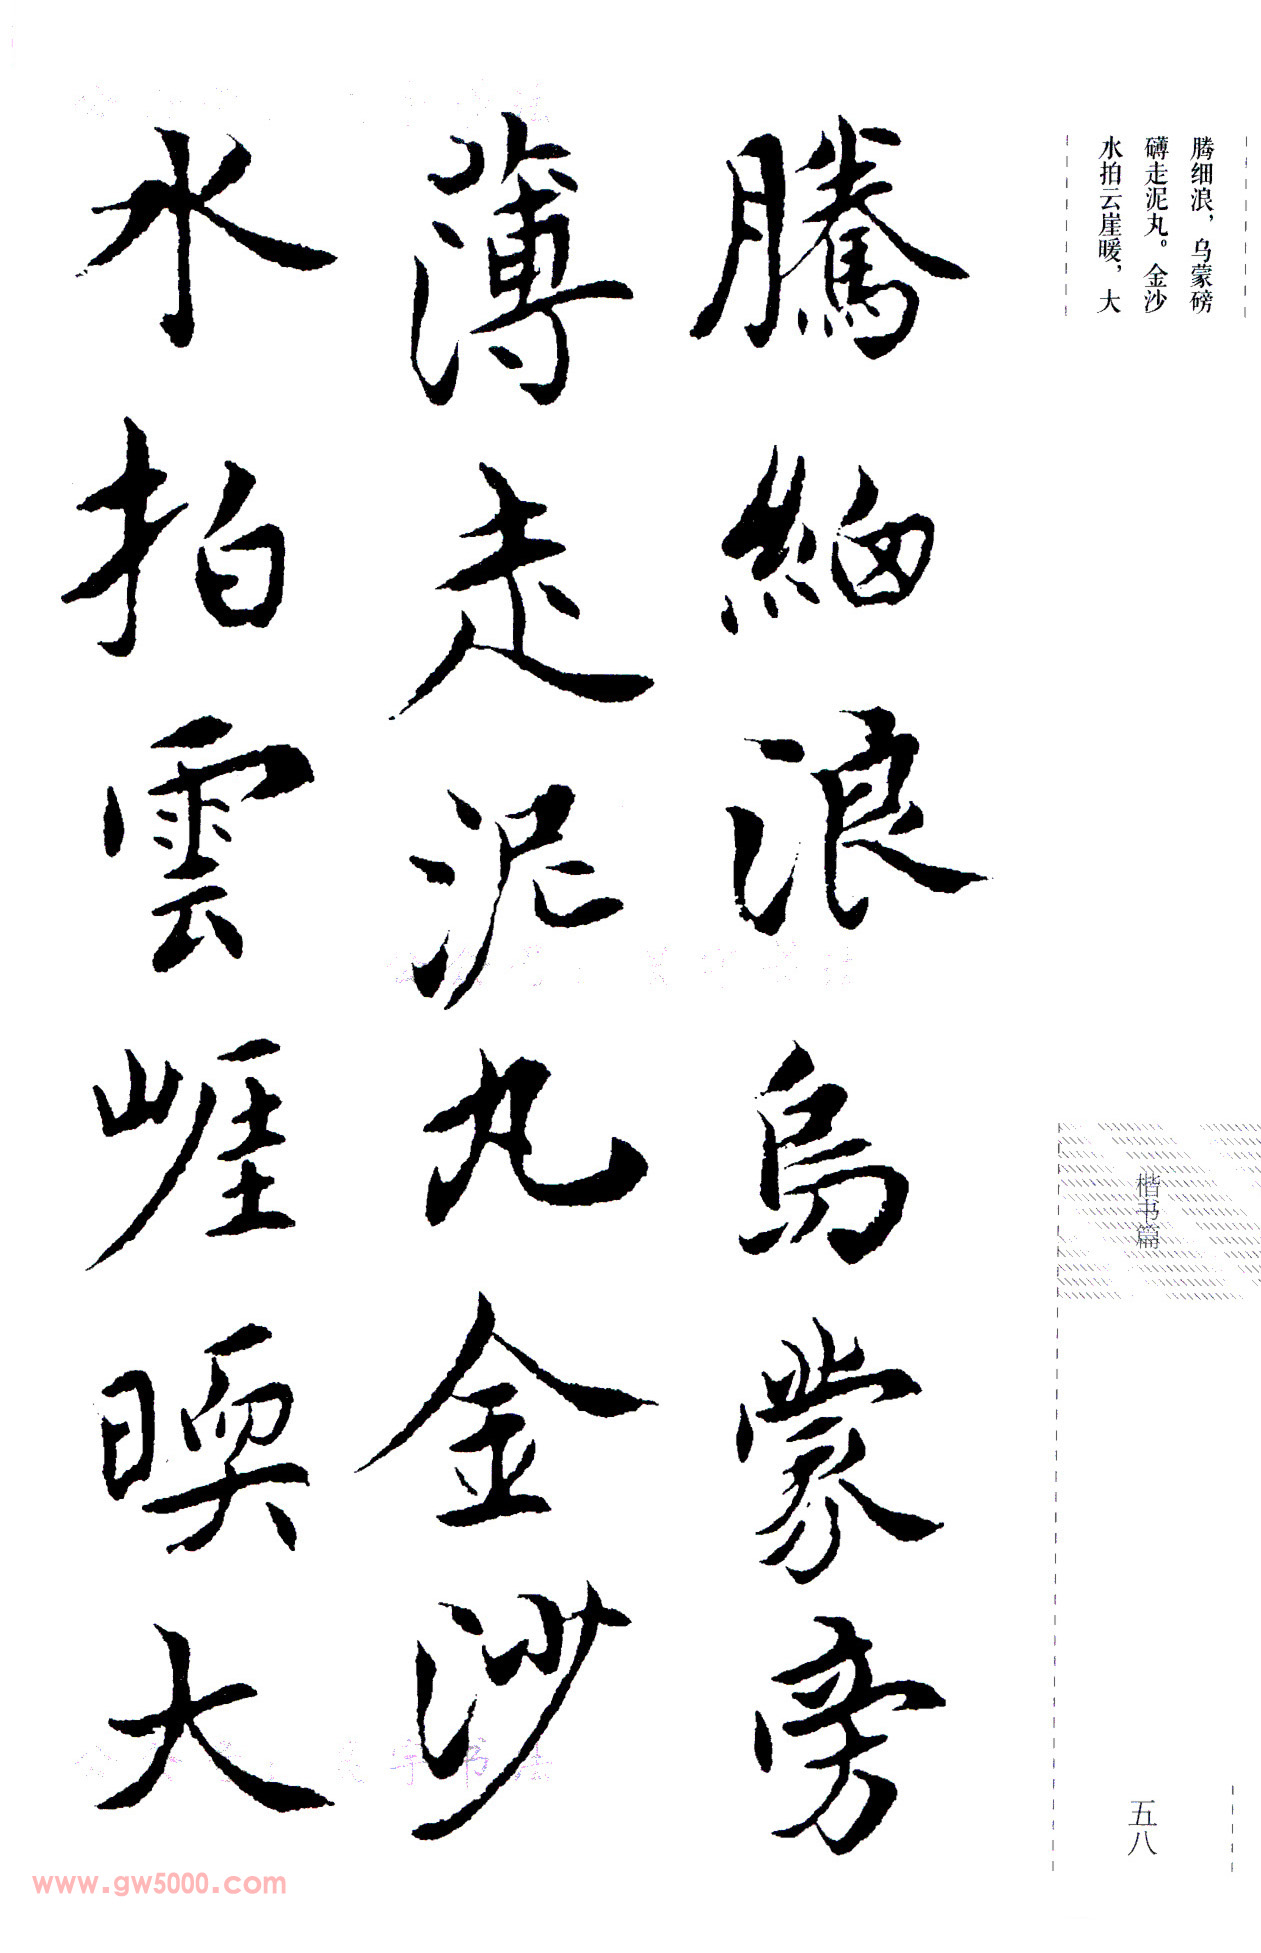 腾细浪，乌蒙磅
礴走泥丸。金沙
水拍云崖暖，大
騰細浪烏蒙旁
薄走泥丸金沙
水拍雲崕暖大
楷书篇
五八
www.gw5000.com